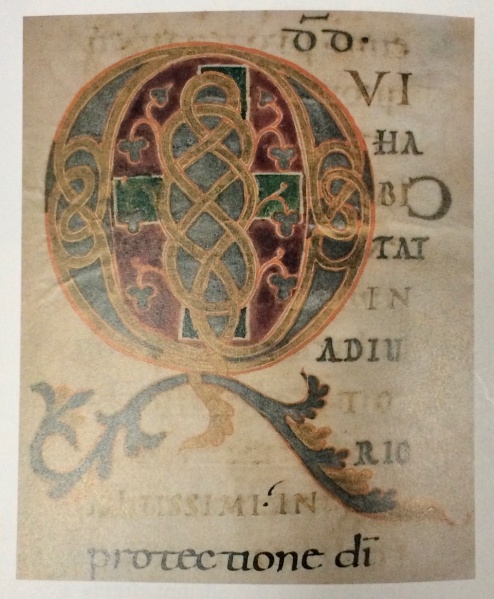 d̄d·
QVI
HA
BI
TAT
IN
ADIU
TO
RIO
ALTISSIMI·IN
protectione dī